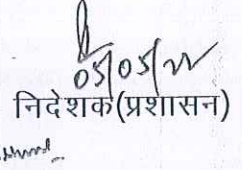 05/05/22
निदेशक(प्रशासन)